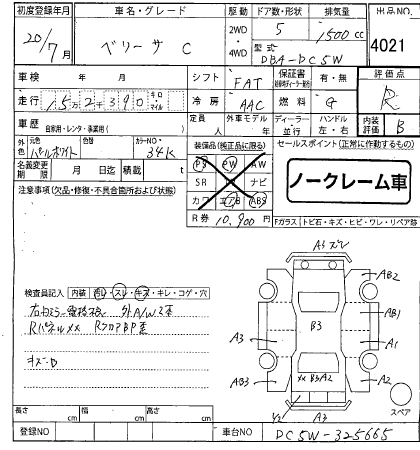 初度登録年月 車名・グレード 駆動 ドア数・形状 排気量 出品NO.
20/7月 ベリーサ C 2WD・4WD 5 1500cc 4021
型式 DBA-DC5W
車検 年 月 シフト FAT 保証書 有・無 評価点 R
走行 15万2千390 キロ・マイル 冷房 AAC 燃料 G
車歴 自家用・レンタ・事業用( ) 定員 人 外車モデル 年 ディーラー・並行 ハンドル 左・右 内装評価 B
外色 元色 パールホワイト 色替 カラーNO. 34K
装備品(純正品に限る) セールスポイント(正常に作動するもの)
名義変更期限 月 日迄 積載 t
PS PW AW
SR ナビ
カワ エアB ABS
ノークレーム車
注意事項(欠品・修復・不具合箇所および状態)
R券 10,900円
Fガラス トビ石・キズ・ヒビ・ワレ・リペア跡
A3
AB2
検査員記入 内装 スレ・キズ・キレ・コゲ・穴
AB1
外A/W
B3
RパネルXX RフロアBP
A3
A1
キズ・D
AB3
XX B3A2
A2
スペア
A3
長さ cm 幅 cm 高さ cm
登録NO 車台NO DC5W-325665